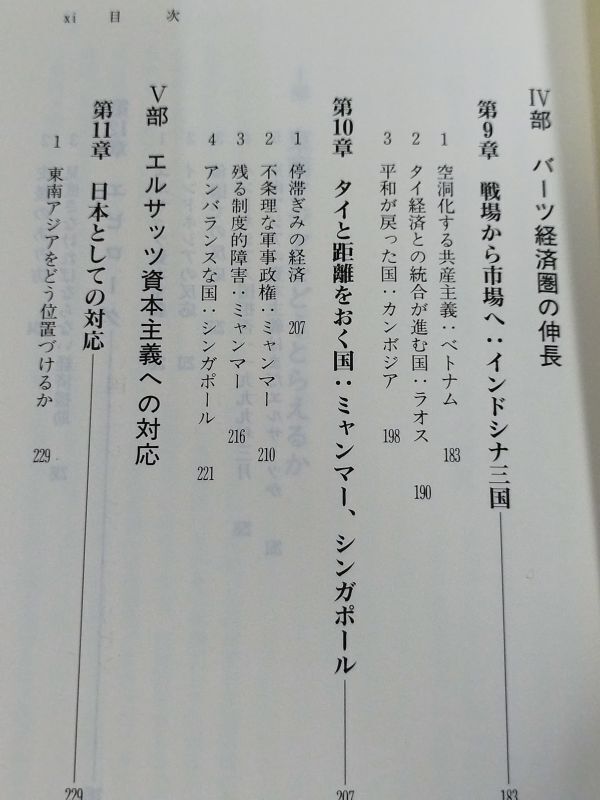 xi　目　次
Ⅳ部　バーツ経済圏の伸長
第9章　戦場から市場へ：インドシナ三国――183
1　空洞化する共産主義：ベトナム　183
2　タイ経済との統合が進む国：ラオス　190
3　平和が戻った国：カンボジア　198
第10章　タイと距離をおく国：ミャンマー、シンガポール――207
1　停滞ぎみの経済　207
2　不条理な軍事政権：ミャンマー　210
3　残る制度的障害：ミャンマー　216
4　アンバランスな国：シンガポール　221
Ⅴ部　エルサッツ資本主義への対応
第11章　日本としての対応――229
1　東南アジアをどう位置づけるか　229